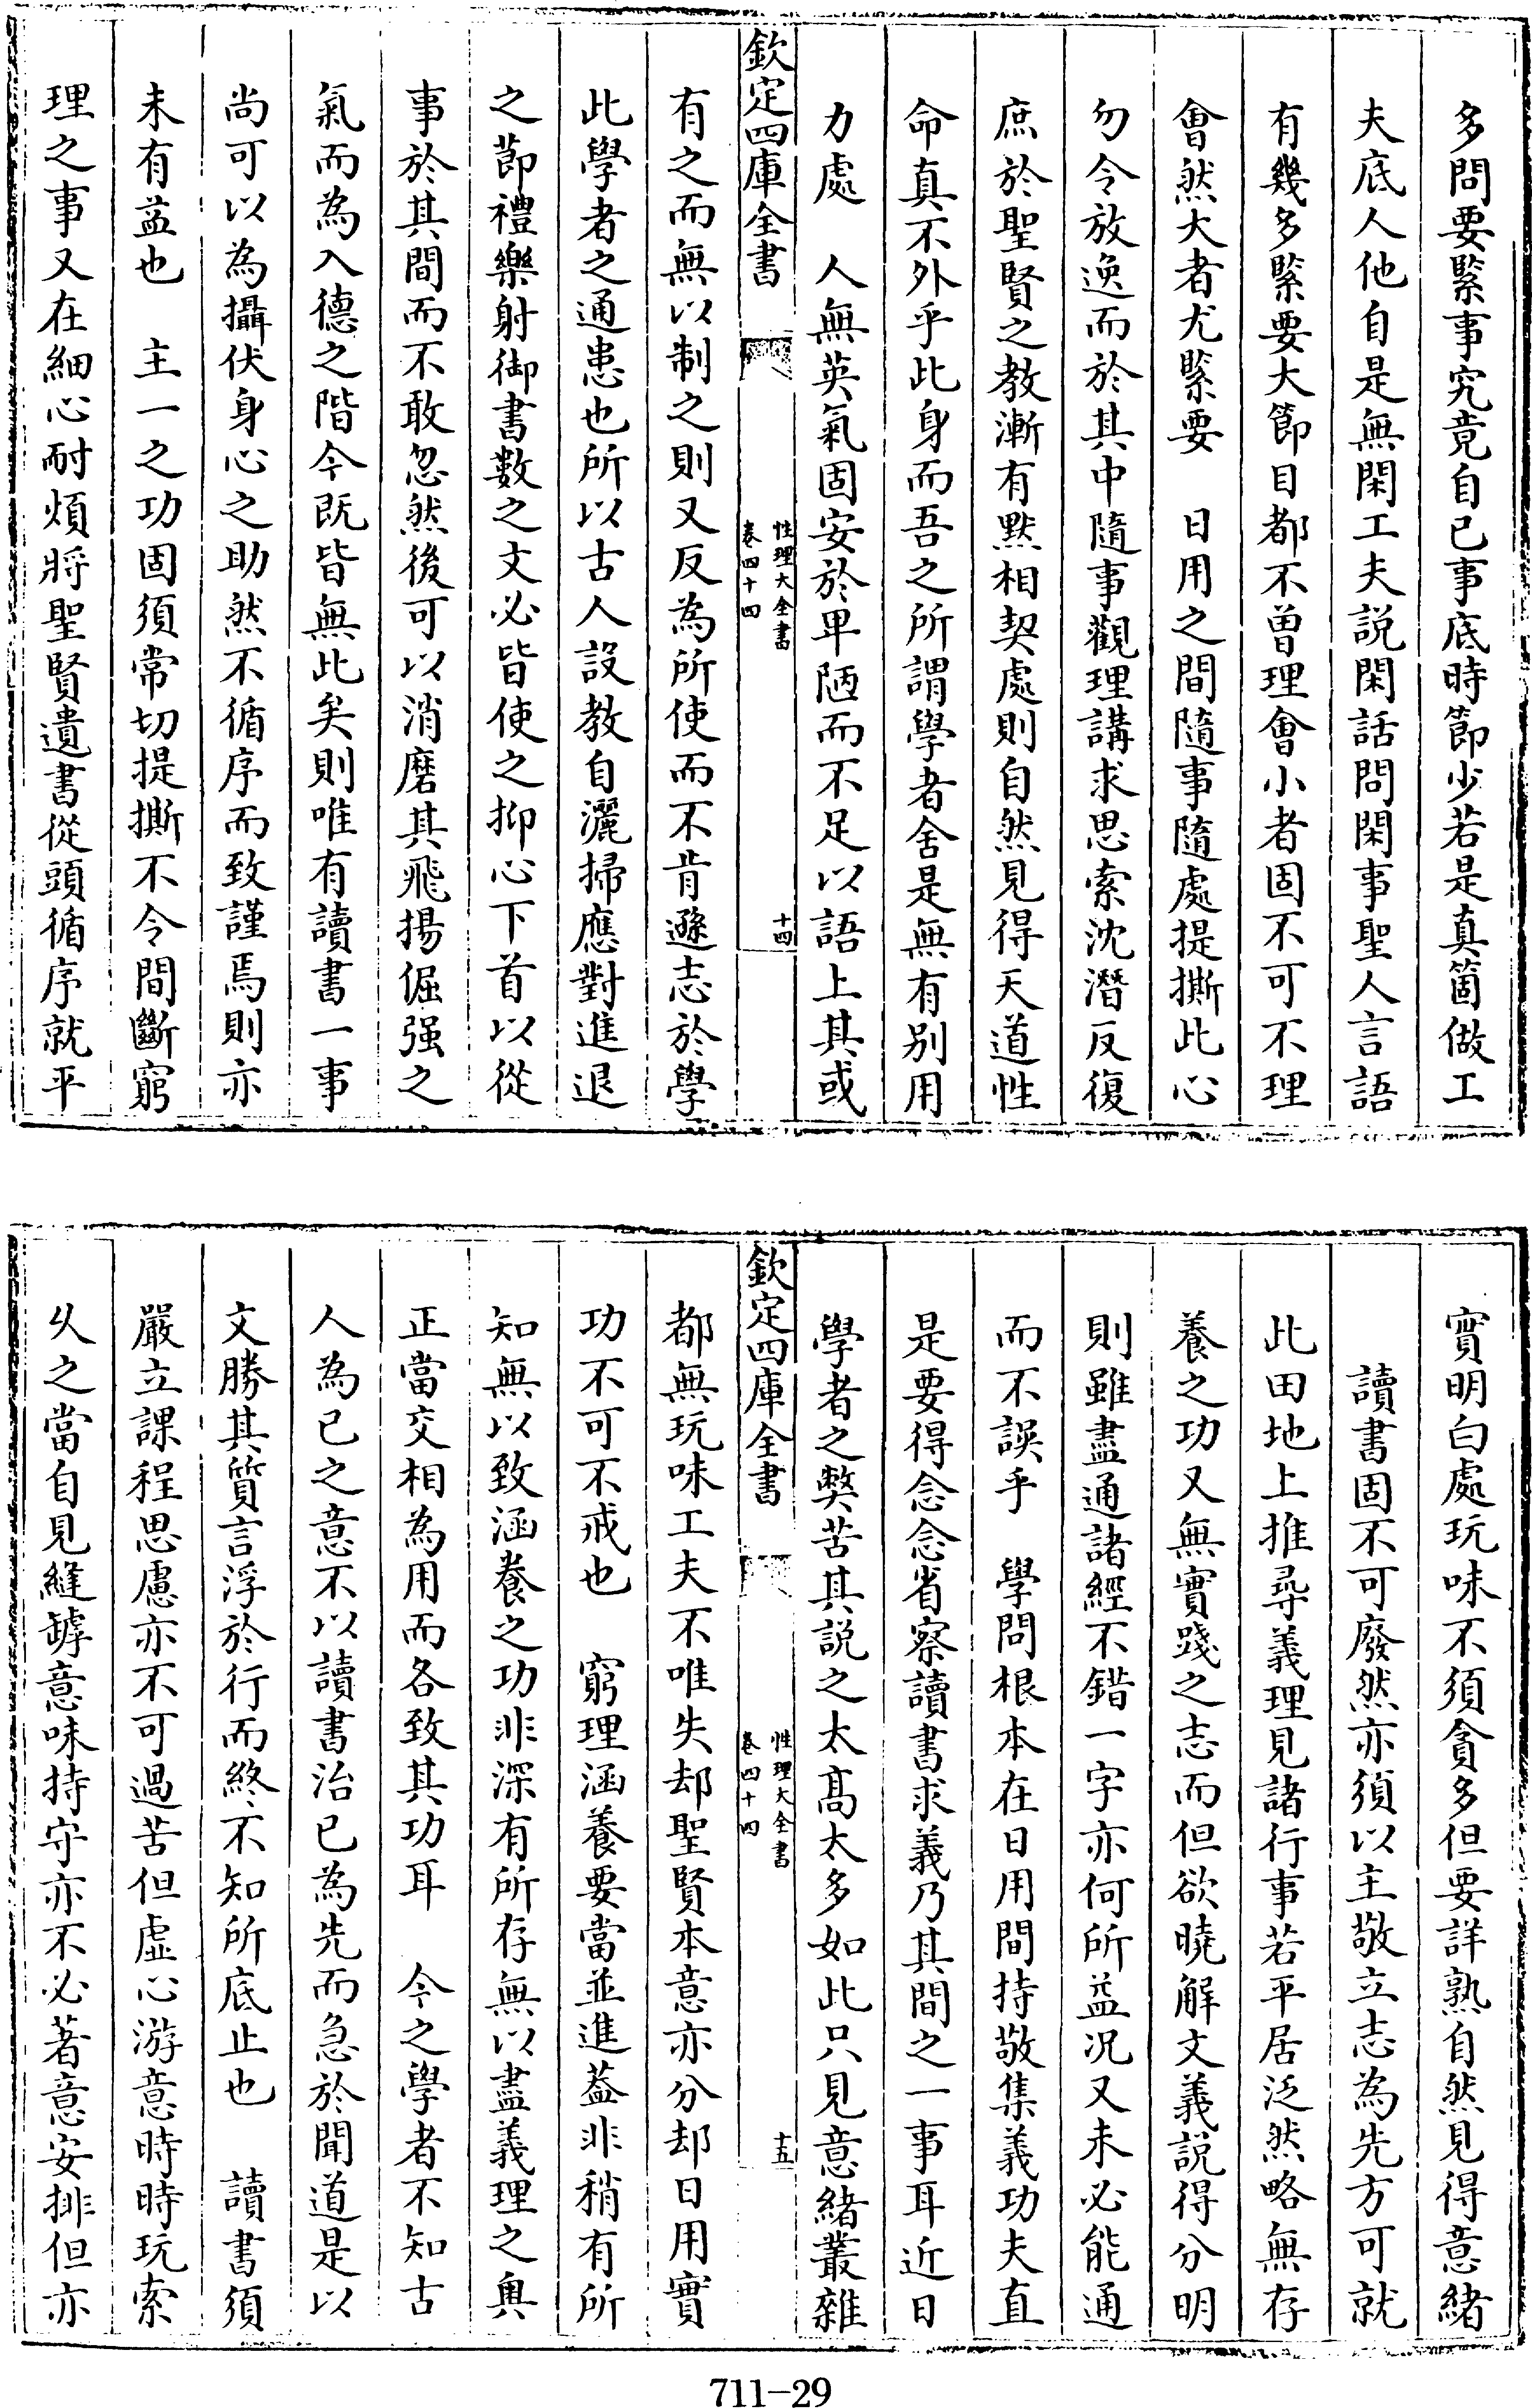 多問要緊事究竟自已事底時節少若是真箇做工
夫底人他自是無閑工夫説閑話問閑事聖人言語
有幾多緊要大節目都不曾理會小者固不可不理
會然大者尤緊要　日用之間隨事隨處提撕此心
勿令放逸而於其中隨事觀理講求思索沈潛反復
庶於聖賢之教漸有黙相契處則自然見得天道性
命真不外乎此身而吾之所謂學者舍是無有别用
力處　人無英氣固安於卑陋而不足以語上其或
欽定四庫全書
性理大全書
卷四十四
十四
有之而無以制之則又反為所使而不肯遜志於學
此學者之通患也所以古人設教自灑掃應對進退
之節禮樂射御書數之文必皆使之抑心下首以從
事於其間而不敢忽然後可以消磨其飛揚倔强之
氣而為入德之階今既皆無此矣則唯有讀書一事
尚可以為攝伏身心之助然不循序而致謹焉則亦
未有益也　主一之功固須常切提撕不令間斷窮
理之事又在細心耐煩將聖賢遺書從頭循序就平
實明白處玩味不須貪多但要詳熟自然見得意緒
讀書固不可廢然亦須以主敬立志為先方可就
此田地上推尋義理見諸行事若平居泛然略無存
養之功又無實踐之志而但欲曉解文義説得分明
則雖盡通諸經不錯一字亦何所益况又未必能通
而不誤乎　學問根本在日用間持敬集義功夫直
是要得念念省察讀書求義乃其間之一事耳近日
學者之弊苦其説之太髙太多如此只見意緒叢雜
欽定四庫全書
性理大全書
卷四十四
十五
都無玩味工夫不唯失却聖賢本意亦分却日用實
功不可不戒也　窮理涵養要當並進葢非稍有所
知無以致涵養之功非深有所存無以盡義理之奥
正當交相為用而各致其功耳　今之學者不知古
人為已之意不以讀書治已為先而急於聞道是以
文勝其質言浮於行而終不知所底止也　讀書須
嚴立課程思慮亦不可過苦但虚心游意時時玩索
乆之當自見縫罅意味持守亦不必著意安排但亦
711-29